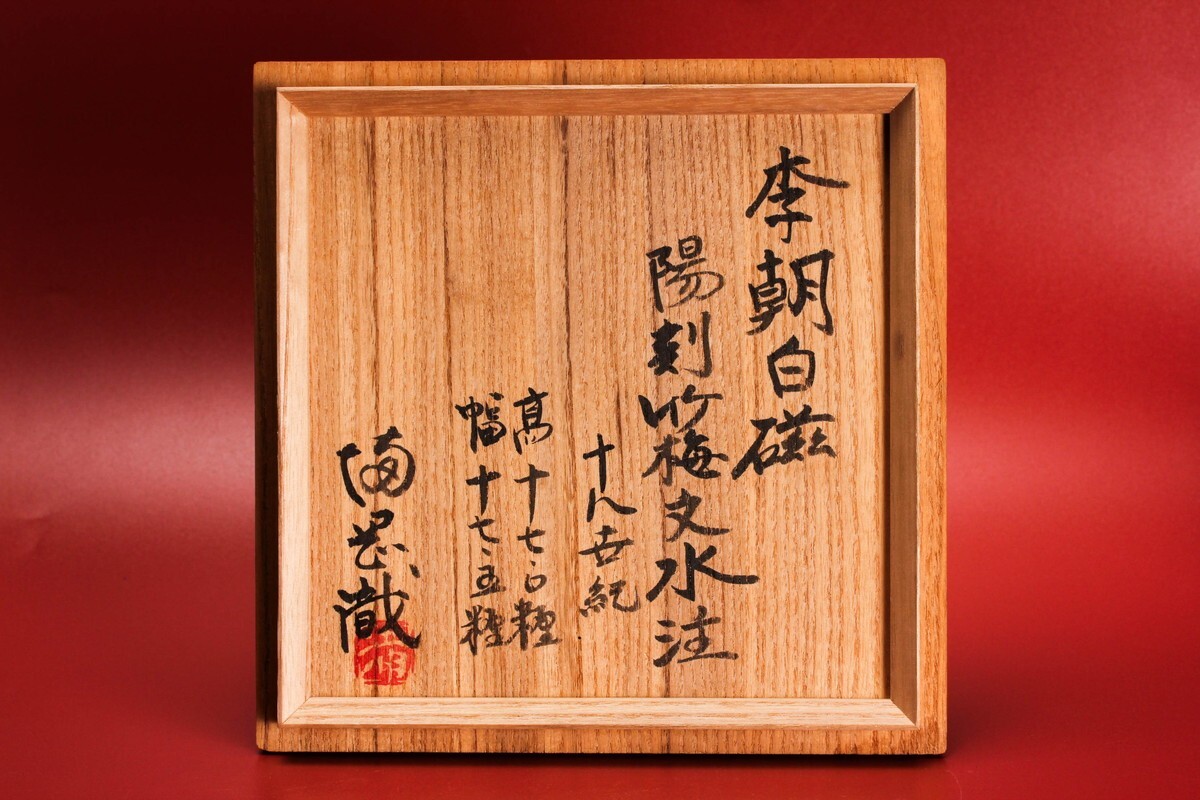 李朝白磁
陽刻竹梅文水注
十八世紀
高十七、〇糎
幅十七、五糎